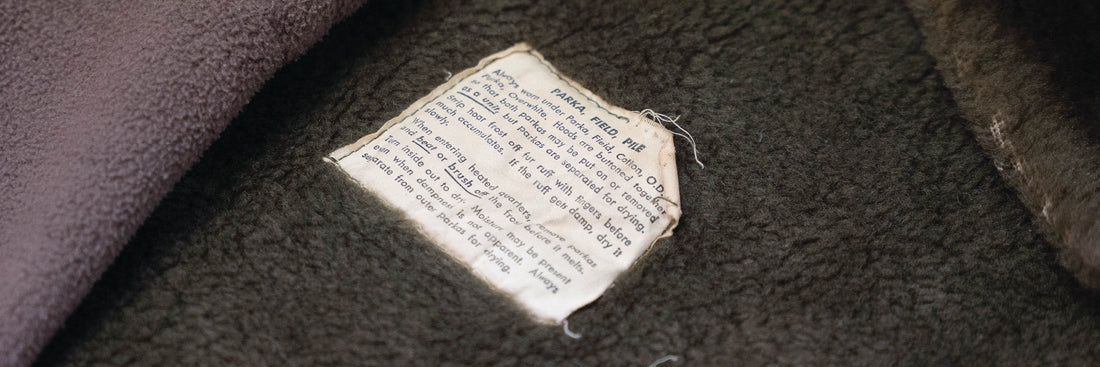 PARKA, FIELD, PILE
Always worn under Parka, Field, Cotton, O.D.
Parka, Overwhite. Hoods are buttoned together
so that both parkas may be put on or removed
as a unit, but parkas are separated for drying.
Strip hoar frost off fur ruff with fingers before
much accumulates. If the ruff gets damp, dry it
slowly.
When entering heated quarters, remove parkas
and beat or brush off the frost before it melts.
Turn inside out to dry. Moisture may be present
even when dampness is not apparent. Always
separate from outer parkas for drying.